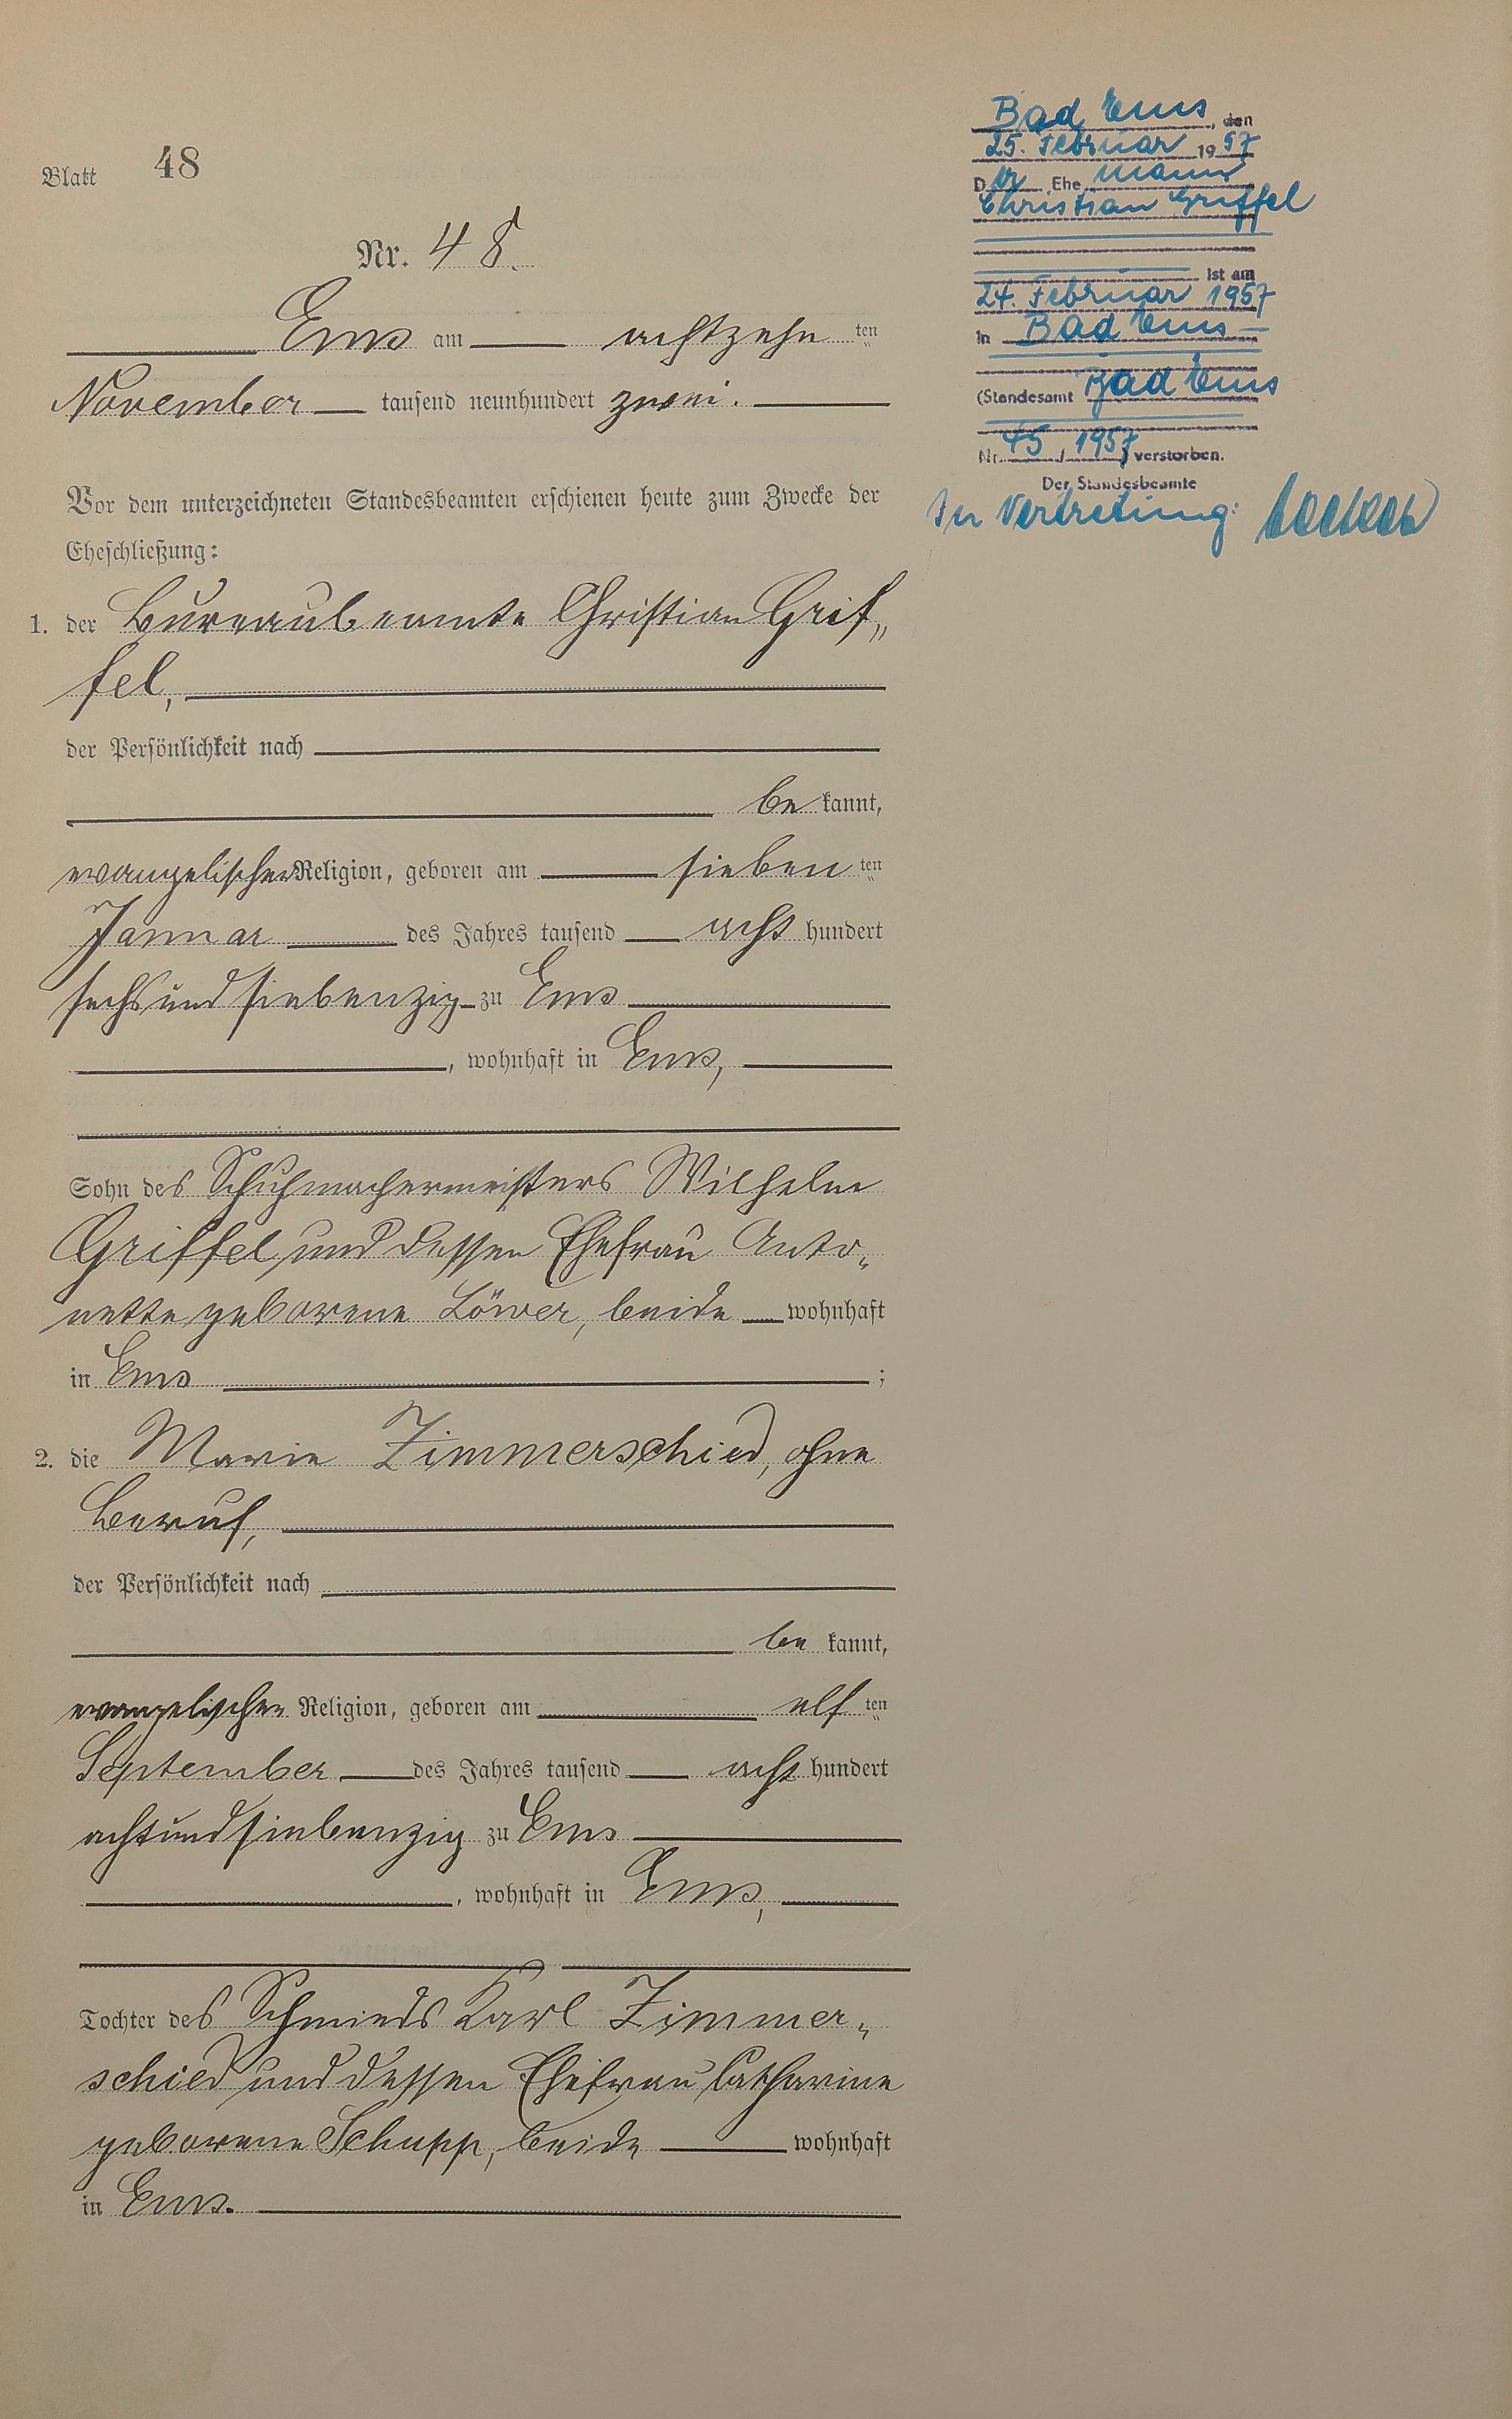 Blatt 48
Nr. 48.
Ems am achtzehn ten
November tausend neunhundert zwei.
Vor dem unterzeichneten Standesbeamten erschienen heute zum Zwecke der
Eheschließung:
1. der Bureaubeamte Christian Grif„
fel,
der Persönlichkeit nach
be kannt,
evangelischer Religion, geboren am sieben ten
Januar des Jahres tausend acht hundert
sechsundsiebenzig zu Ems
, wohnhaft in Ems,
Sohn des Schuhmachermeisters Wilhelm
Griffel und dessen Ehefrau Anto„
nette geborene Löwer, beide wohnhaft
in Ems ;
2. die Marie Zimmerschied, ohne
Beruf,
der Persönlichkeit nach
be kannt,
evangelischer Religion, geboren am elf ten
September des Jahres tausend acht hundert
achtundsiebenzig zu Ems
, wohnhaft in Ems,
Tochter des Schmieds Karl Zimmer„
schied und dessen Ehefrau Catharine
geborene Schupp, beide wohnhaft
in Ems.
Bad Ems, den
25. Februar 1957
Der Ehe mann
Christian Griffel
ist am
24. Februar 1957
in Bad Ems
(Standesamt Bad Ems
Nr. 45 / 1957) verstorben.
Der Standesbeamte
In Vertretung: